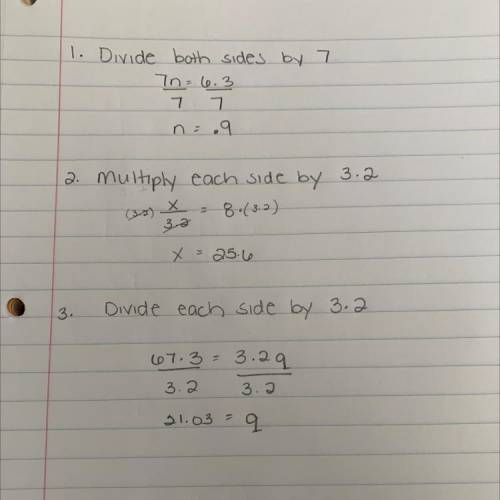 1. Divide both sides by 7
7n = 6.3
7 7
n = .9
2. Multiply each side by 3.2
(3.2) x/3.2 = 8·(3.2)
x = 25.6
3. Divide each side by 3.2
67.3 = 3.2q
3.2 3.2
21.03 = q